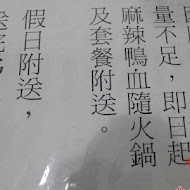 量不足，即日起
麻辣鴨血隨火鍋
及套餐附送。
假日附送，